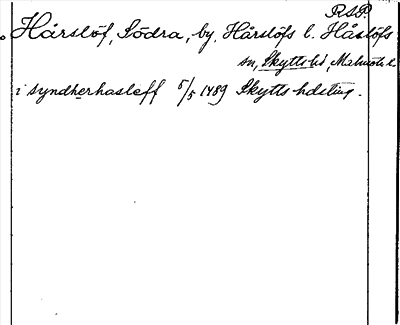 RSP.
Hårslöf, Södra, by, Hårslöfs l. Håslöfs
sn, Skytts hd, Malmöh. l.
i syndherhasleff 5/5 1489 Skytts hdsting.